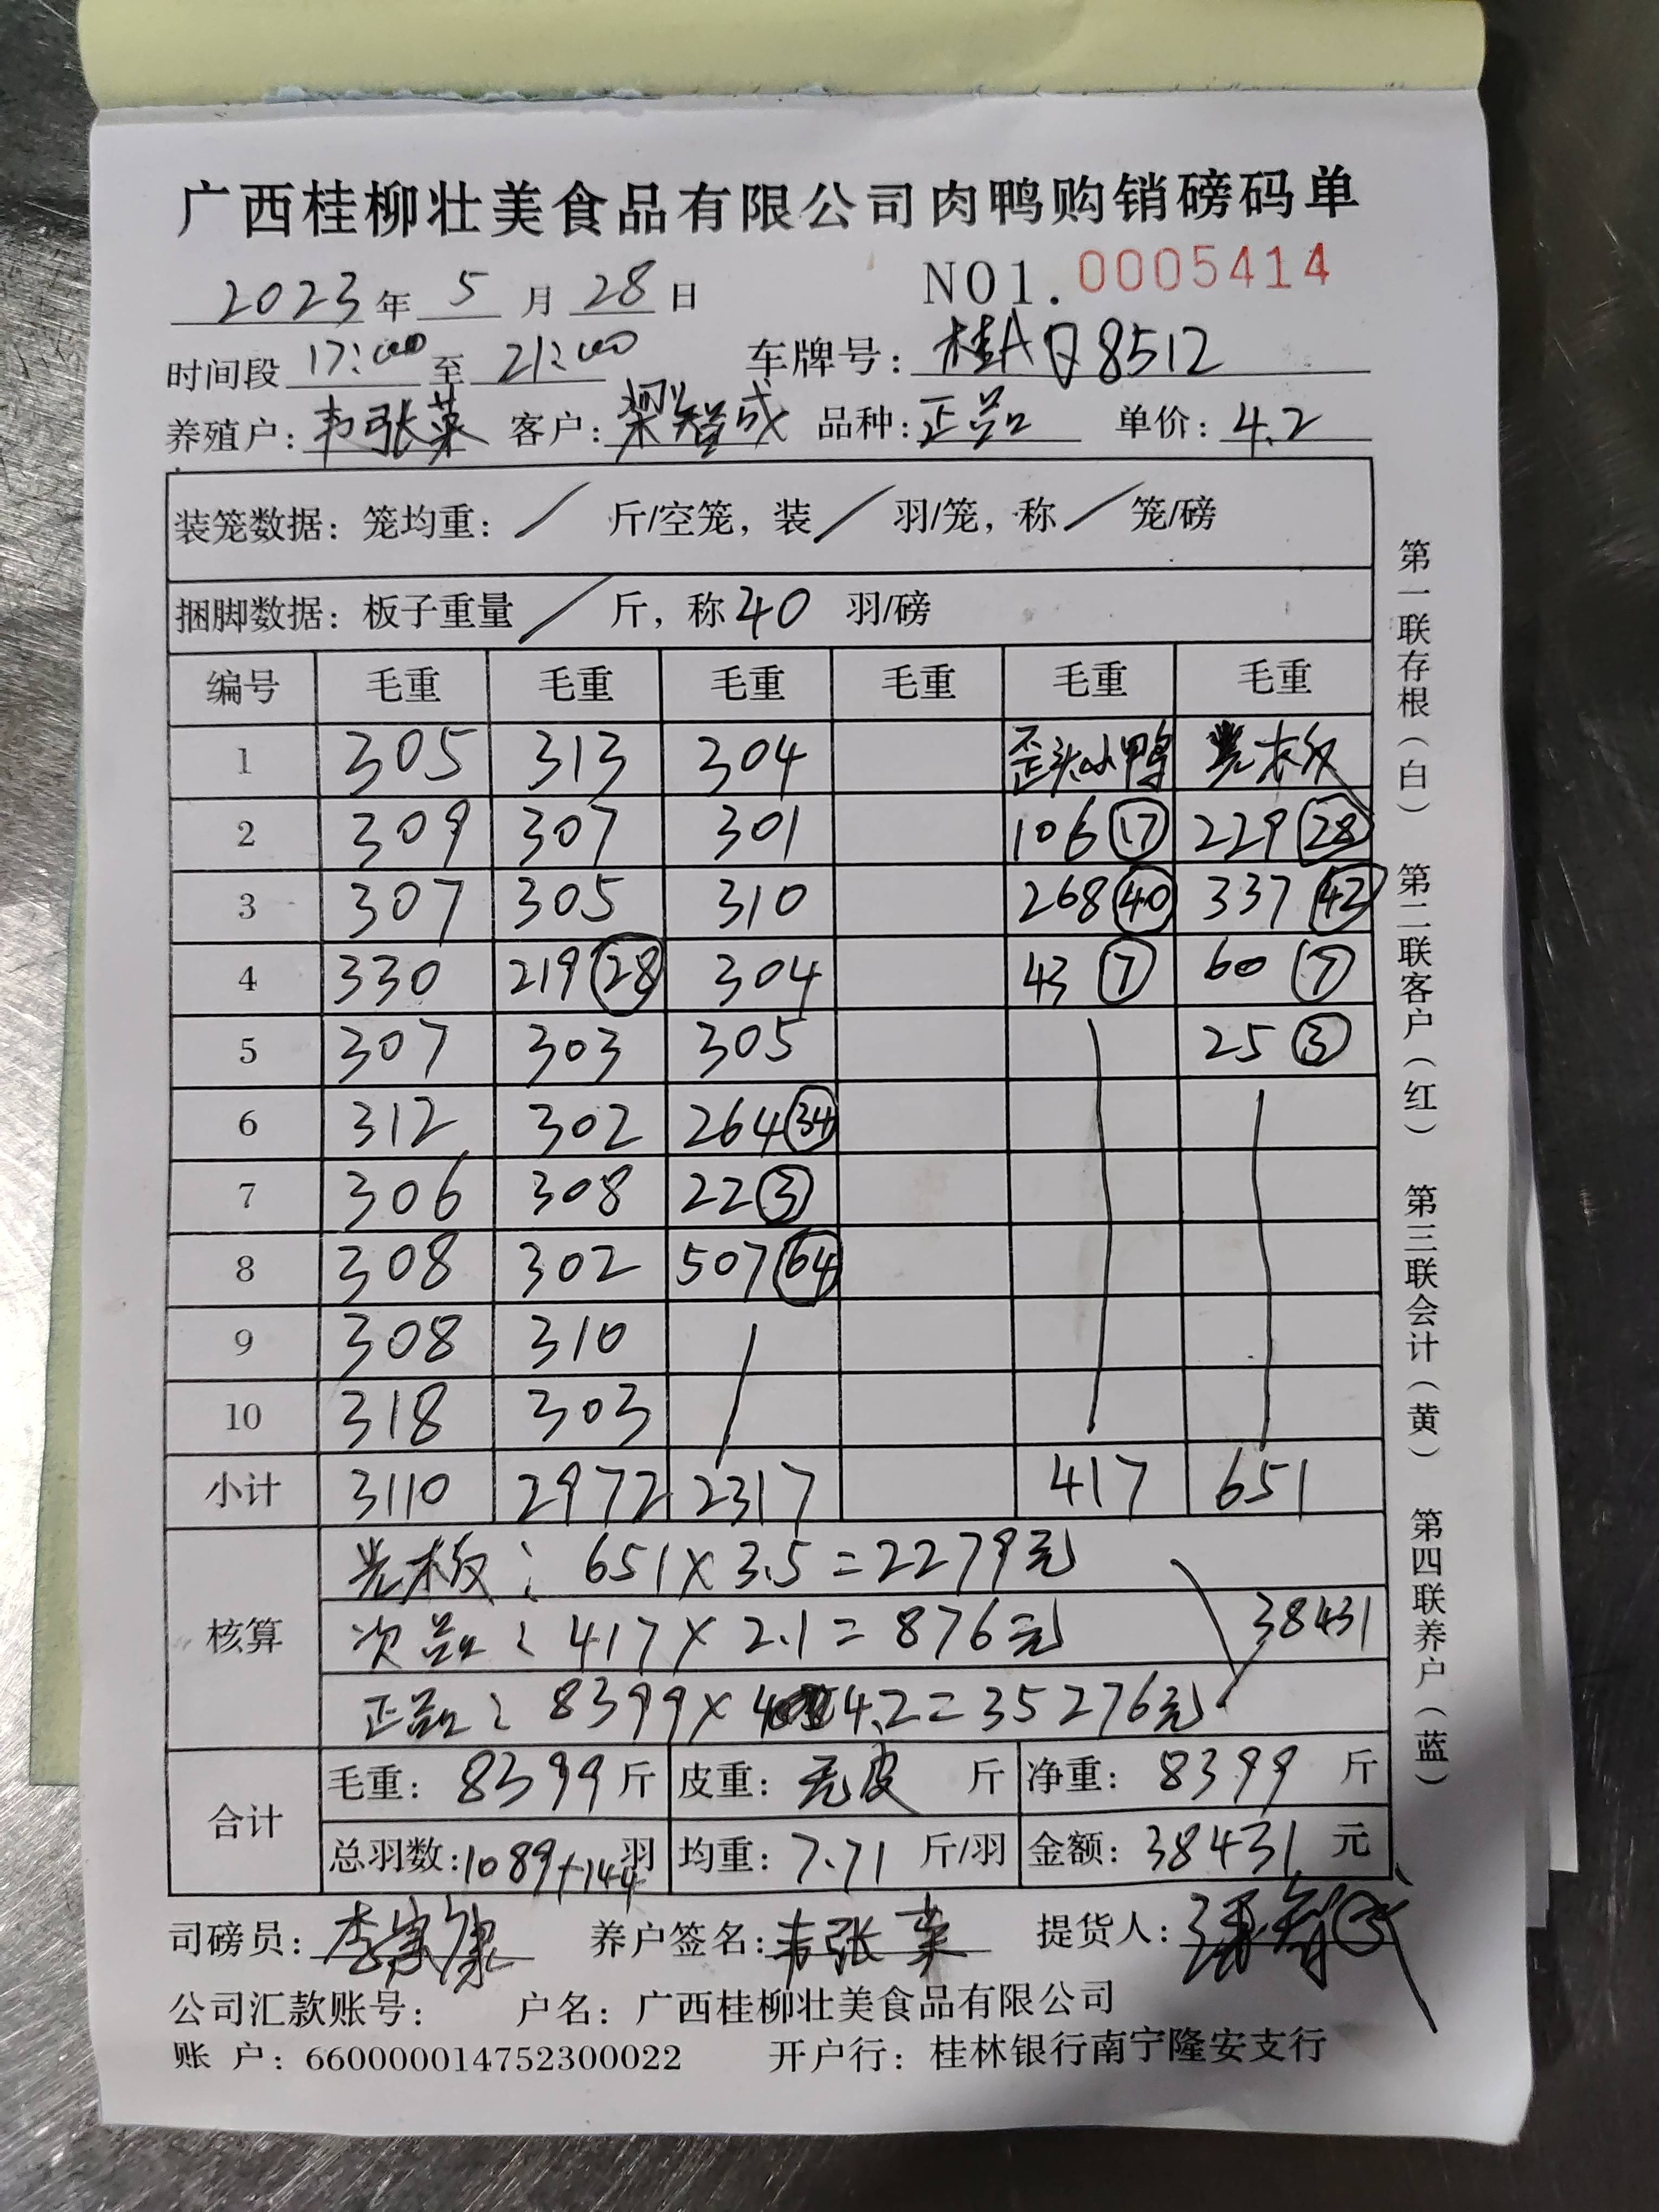 广西桂柳壮美食品有限公司肉鸭购销磅码单
2023年 5 月 28 日 NO1. 0005414
时间段 17:00 至 21:00 车牌号: 桂A 8512
养殖户: 韦张英 客户: 梁智成 品种: 正品 单价: 4.2
装笼数据: 笼均重: / 斤/空笼, 装 / 羽/笼, 称 / 笼/磅
捆脚数据: 板子重量 / 斤, 称 40 羽/磅
编号 毛重 毛重 毛重 毛重 毛重 毛重
1 305 313 304 歪头小鸭 光木板
2 309 307 301 106 17 229 28
3 307 305 310 268 40 337 42
4 330 219 28 304 43 7 60 7
5 307 303 305 25 3
6 312 302 264 34
7 306 308 22 3
8 308 302 507 64
9 308 310
10 318 303
小计 3110 2972 2317 417 651
核算 光木板: 651×3.5=2279元
次品: 417×2.1=876元 38431
正品: 8399× 4.2=35276元
合计 毛重: 8399 斤 皮重: 无皮 斤 净重: 8399 斤
总羽数: 1089+144 羽 均重: 7.71 斤/羽 金额: 38431 元
司磅员: 养户签名: 韦张英 提货人:
公司汇款账号: 户名: 广西桂柳壮美食品有限公司
账 户: 660000014752300022 开户行: 桂林银行南宁隆安支行
第一联存根(白) 第二联客户(红) 第三联会计(黄) 第四联养户(蓝)